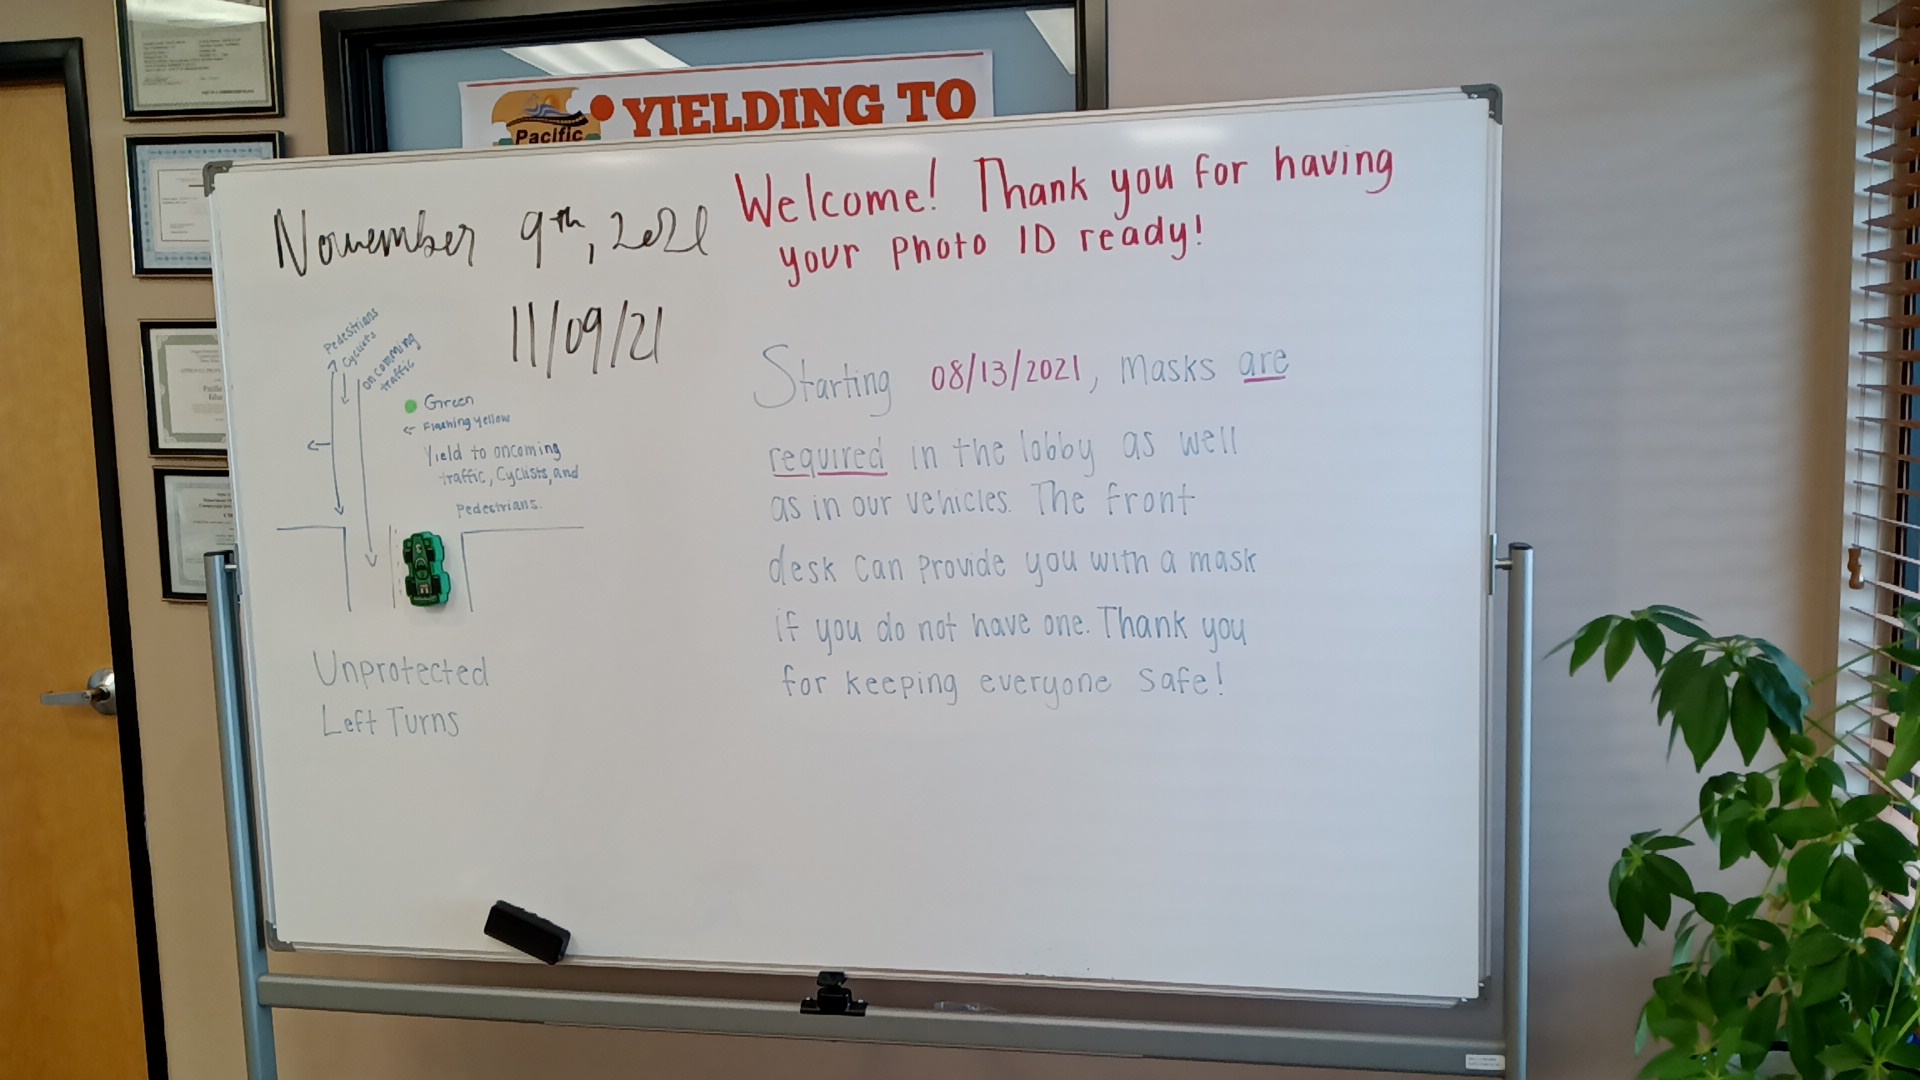 YIELDING TO
Pacific
November 9th, 2021
11/09/21
Welcome! Thank you for having
your photo ID ready!
Pedestrians
Cyclists
oncomming
traffic
Green
← Flashing yellow
Yield to oncoming
traffic, Cyclists, and
pedestrians.
Unprotected
Left Turns
Starting 08/13/2021, masks are
required in the lobby as well
as in our vehicles. The front
desk can provide you with a mask
if you do not have one. Thank you
for keeping everyone safe!